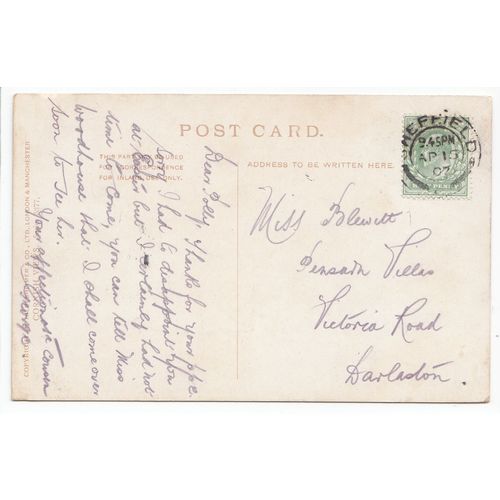 POST CARD.
THIS PART MAY BE USED
FOR CORRESPONDENCE
FOR INLAND USE ONLY.
ADDRESS TO BE WRITTEN HERE.
Dear Polly, Thanks for your ppc.
Sorry I had to disappoint you
at Easter but I certainly had not
time to come, you can tell Miss
Woodhouse that I shall come over
soon to see her.
Your affectionate Cousin
George
Miss Blewitt
Pensarn Villas
Victoria Road
Darlaston.
SHEFFIELD
9.45PM
AP 15
07
PENNY
LTD., LONDON & MANCHESTER